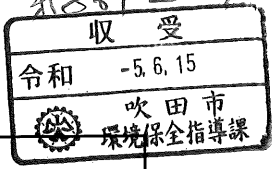 収受
令和 -5.6.15
吹田市
環境保全指導課